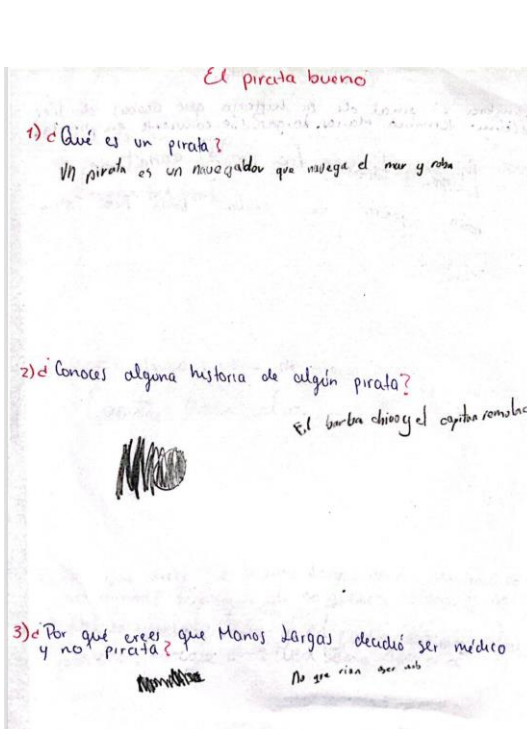 El pirata bueno
1) ¿Qué es un pirata?
Un pirata es un navegador que navega el mar y roba
2) ¿Conoces alguna historia de algún pirata?
El barba chivo y el capitan
3) ¿Por qué crees que Manos Largas decidió ser médico
y no pirata?